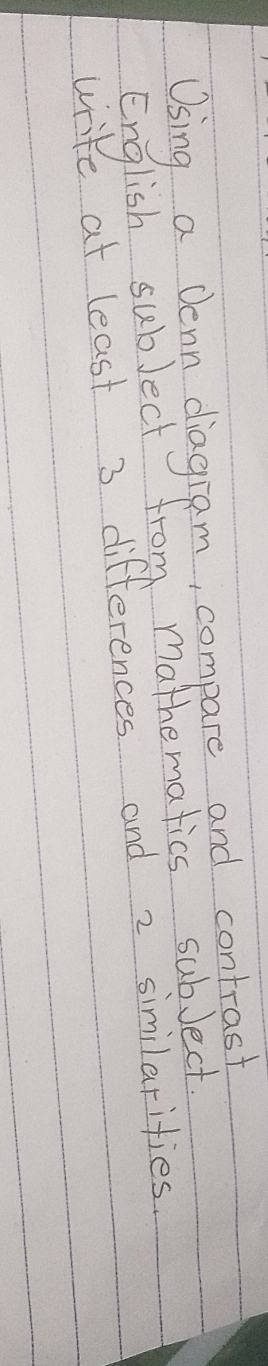 Using a Venn diagram, compare and contrast
English subject from Mathematics subject.
Write at least 3 differences and 2 similarities.